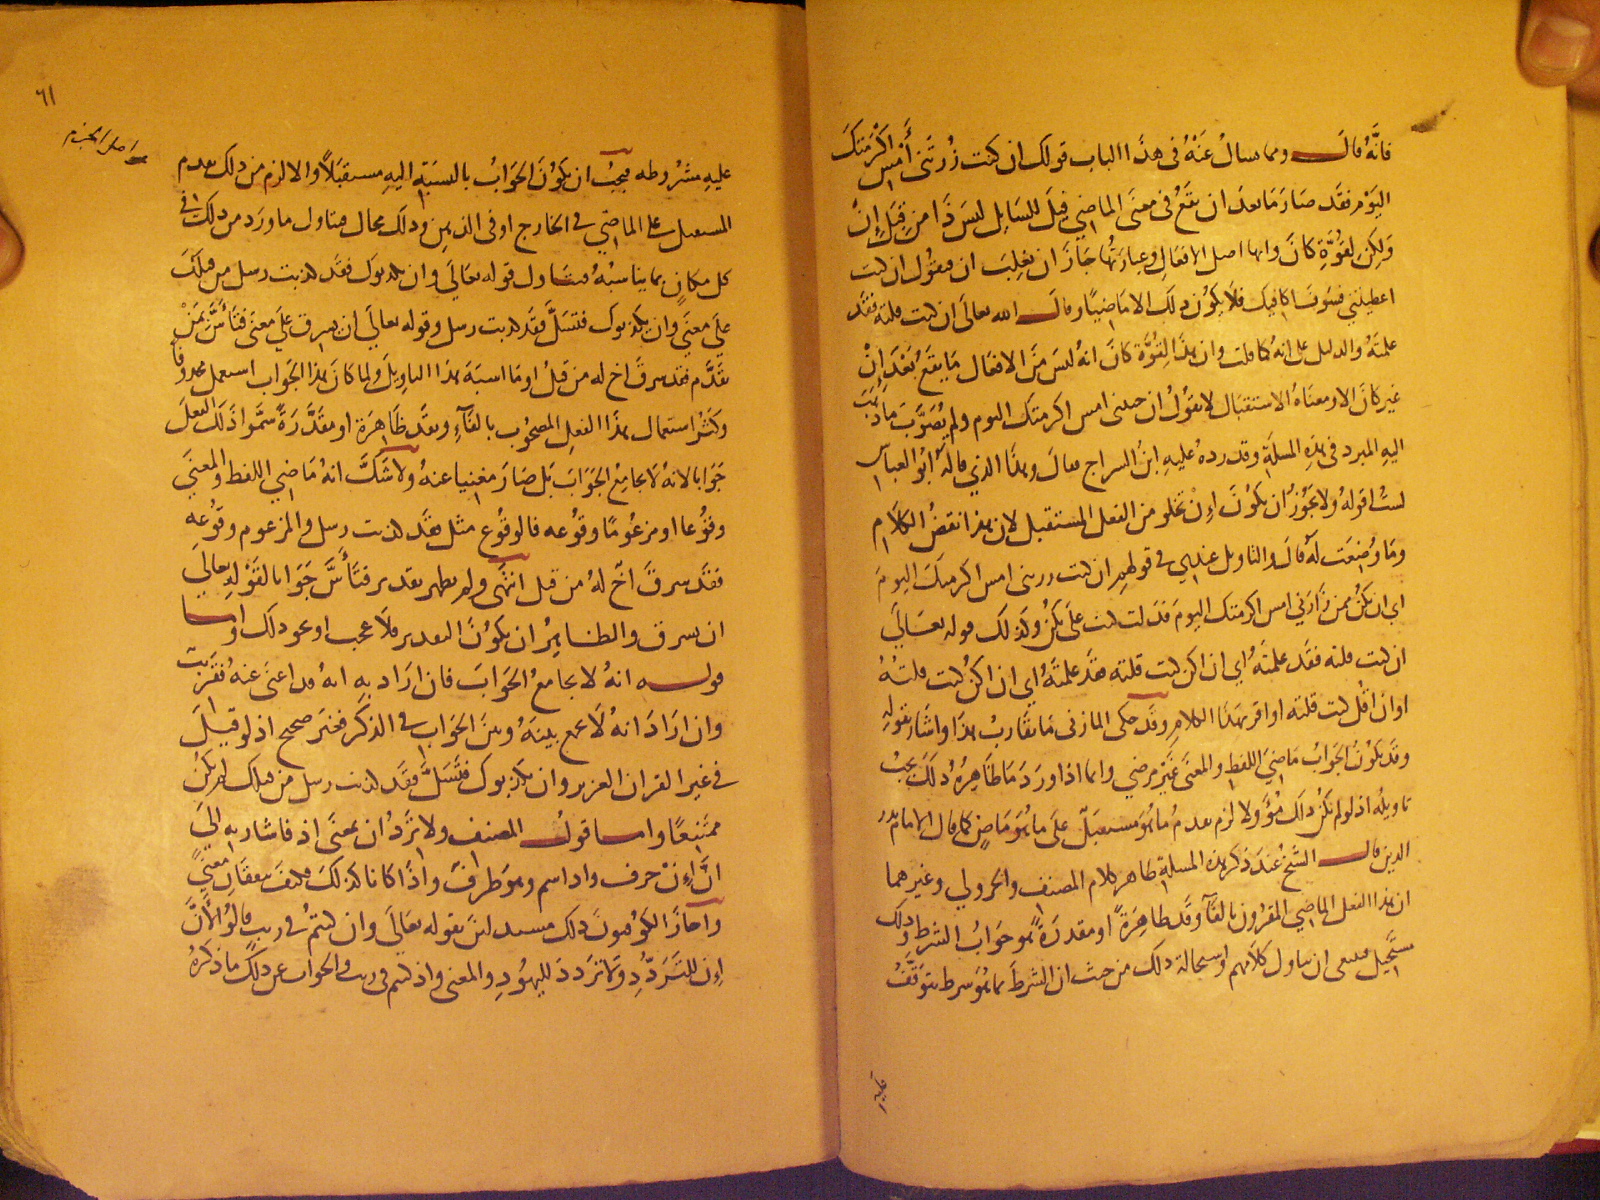 فانه قال ومما يسال عنه في هذا الباب قولك ان كنت زرتني أمس اكرمتك
اليوم فقد صار ما بعد ان يقع في معنى الماضي قيل للسايل ليس ذا من قبل إن
ولكن لقوة كان وانها اصل الافعال وعبارتها جاز ان تغلب ان فنقول ان كنت
اعطيتني فسوف اكافيك فلا يكون ذلك الا ماضيا وقال الله تعالى ان كنت قلته فقد
علمته والدليل على انه كما قلت وان هذا لقوة كان انه ليس من الافعال ما يقع بعد ان
غير كان الا ومعناه الاستقبال لا تقول ان جيتني امس اكرمتك اليوم ولم يصوب ما ذهب
اليه المبرد في هذه المسلة وقد رده عليه ابن السراج فقال وهذا الذي قاله ابو العباس
لست اقوله ولا يجوز ان يكون إن تخلو من الفعل المستقبل لان هذا نقض الكلام
وما وضعت له قال والتاويل عندي في قولهم ان كنت زرتني امس اكرمتك اليوم
اي ان تكن ممن زارني امس اكرمتك اليوم فدلت كنت على تكن وكذلك قوله تعالى
ان كنت قلته فقد علمته اي ان اكن كنت قلته فقد علمته اي ان اكن كنت قلته
او ان اقل كنت قلته او اقر بهذا الكلام وقد حكى المازني ما يقارب هذا واشار بقوله
وقد يكون الجواب ماضي اللفظ والمعنى غير مرضي وانما اذا ورد ما ظاهره ذلك يجب
تاويله اذ لو لم يكن ذلك مؤولا لزم تقدم ما هو مستقبل على ما هو ماض كما قال الامام بدر
الدين قال الشيخ عند ذكر هذه المسلة ظاهر كلام المصنف والجزولي وغيرهما
ان هذا الفعل الماضي المقرون بالفاء وقد ظاهرة او مقدرة هو جواب الشرط وذلك
مستحيل فينبغي ان يتاول كلامهم واستحالة ذلك من حيث ان الشرط بما هو شرط يتوقف
عليه
٦١
اصل الجزم
عليه مشروطه فيجب ان يكون الجواب بالنسبة اليه مستقبلا والا لزم من ذلك تقدم
المستقبل على الماضي في الخارج او في الذهن وذلك محال فيتاول ما ورد من ذلك في
كل مكان بما يناسبه فيتاول قوله تعالى وان يكذبوك فقد كذبت رسل من قبلك
على معنى وان يكذبوك فتسل فقد كذبت رسل وقوله تعالى ان يسرق على معنى فتأس بمن
تقدم فقد سرق اخ له من قبل وما اشبه هذا التاويل ولما كان هذا الجواب استعمل محذوفا
وكثر استعمال هذا الفعل المصحوب بالفاء وبقد ظاهرة او مقدرة سموا ذلك الفعل
جوابا لانه لا يجامع الجواب بل صار مغنيا عنه ولا شك انه ماضي اللفظ والمعنى
وقوعا او مزعوما وقوعه فالوقوع مثل فقد كذبت رسل والمزعوم وقوعه
فقد سرق اخ له من قبل انتهى ولم يظهر تقدير فتأس جوابا لقوله تعالى
ان يسرق والظاهر ان يكون التقدير فلا عجب او نحو ذلك واما
قوله انه لا يجامع الجواب فان اراد به انه قد اغنى عنه فقريب
وان اراد انه لا يجمع بينه وبين الجواب في الذكر فغير صحيح اذ لو قيل
في غير القران العزيز وان يكذبوك فتسل فقد كذبت رسل من قبلك لم يكن
ممتنعا واما قول المصنف ولا ترد ان بمعنى اذ فاشار به الى
ان إن حرف واذ اسم وهو ظرف واذا كانا كذلك فكيف يتفقان معنى
واجاز الكوفيون ذلك مستدلين بقوله تعالى وان كنتم في ريب قالوا لأن
إن للتردد ولا تردد لليهود والمعنى واذ كنتم في ريب والجواب عن ذلك ما ذكره